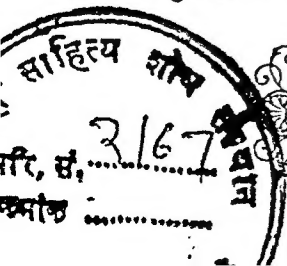 साहित्य शोध
परि. सं. ३167
क्रमांक